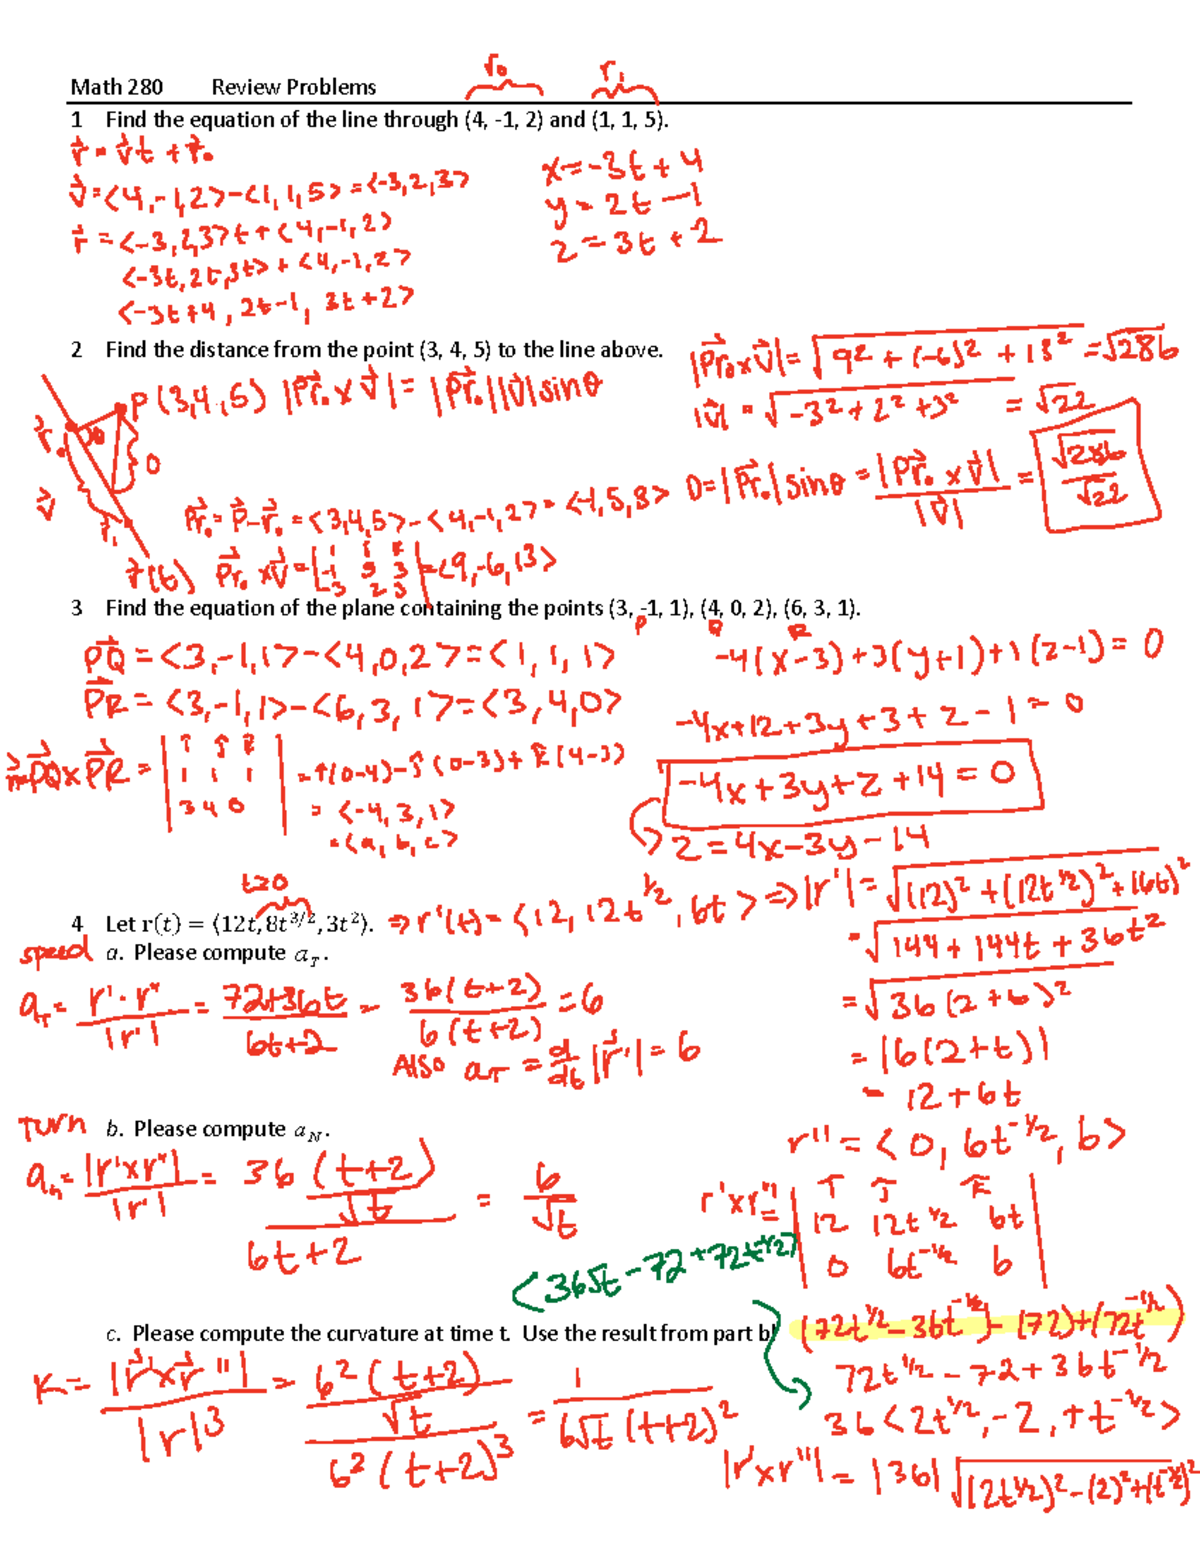 r₀ r₁
Math 280 Review Problems
1 Find the equation of the line through (4, -1, 2) and (1, 1, 5).
r⃗ = v⃗t + r⃗₀
v⃗ = <4,-1,2> - <1,1,5> = <-3,2,3>
r⃗ = <-3,2,3>t + <4,-1,2>
<-3t,2t,3t> + <4,-1,2>
<-3t+4, 2t-1, 3t+2>
x = -3t + 4
y = 2t - 1
z = 3t + 2
2 Find the distance from the point (3, 4, 5) to the line above.
P(3,4,5) |Pr⃗₀ x v⃗| = |Pr⃗₀||v⃗| sinθ
r⃗₀ θ D
v⃗ r⃗₁
r⃗(t)
Pr⃗₀ = P⃗ - r⃗₀ = <3,4,5> - <4,-1,2> = <-1,5,3>
Pr⃗₀ x v⃗ = | i j k | -1 5 3 | -3 2 3 | = <9,-6,13>
|Pr⃗₀ x v⃗| = √(9² + (-6)² + 13²) = √286
|v⃗| = √(-3² + 2² + 3²) = √22
D = |Pr⃗₀| sinθ = |Pr⃗₀ x v⃗| / |v⃗| = √286 / √22
3 Find the equation of the plane containing the points (3, -1, 1), (4, 0, 2), (6, 3, 1).
P Q R
PQ⃗ = <3,-1,1> - <4,0,2> = <1,1,1>
PR⃗ = <3,-1,1> - <6,3,1> = <3,4,0>
n⃗ = PQ⃗ x PR⃗ = | i j k | 1 1 1 | 3 4 0 | = i(0-4) - j(0-3) + k(4-3)
= <-4,3,1>
= <a,b,c>
-4(x-3) + 3(y+1) + 1(z-1) = 0
-4x+12+3y+3+z-1 = 0
-4x+3y+z+14 = 0
z = 4x-3y-14
t≥0
4 Let r(t) = ⟨12t, 8t^3/2, 3t²⟩. ⇒ r'(t) = <12, 12t^1/2, 6t> ⇒ |r'| = √((12)² + (12t^1/2)² + (6t)²)
= √(144 + 144t + 36t²)
= √(36(2+t)²)
= |6(2+t)|
= 12+6t
speed a. Please compute a_T.
a_T = r'·r'' / |r'| = 72+36t / 6t+2 = 36(t+2) / 6(t+2) = 6
Also a_T = d/dt |r⃗'| = 6
Turn b. Please compute a_N.
a_n = |r'xr''| / |r'| = 36 (t+2)/√t / 6t+2 = 6/√t
r'' = <0, 6t^-1/2, 6>
r'xr'' = | i j k | 12 12t^1/2 6t | 0 6t^-1/2 6 |
<36√t - 72 + 72t^-1/2>
c. Please compute the curvature at time t. Use the result from part b!
(72t^1/2 - 36t^-1/2) - (72) + (72t^-1/2)
72t^1/2 - 72 + 36t^-1/2
36<2t^1/2, -2, +t^-1/2>
|r'xr''| = |36| √((2t^1/2)² - (2)² + (t^-1/2)²
K = |r⃗' x r⃗''| / |r|³ = 6²(t+2)/√t / 6²(t+2)³ = 1 / 6√t (t+2)²